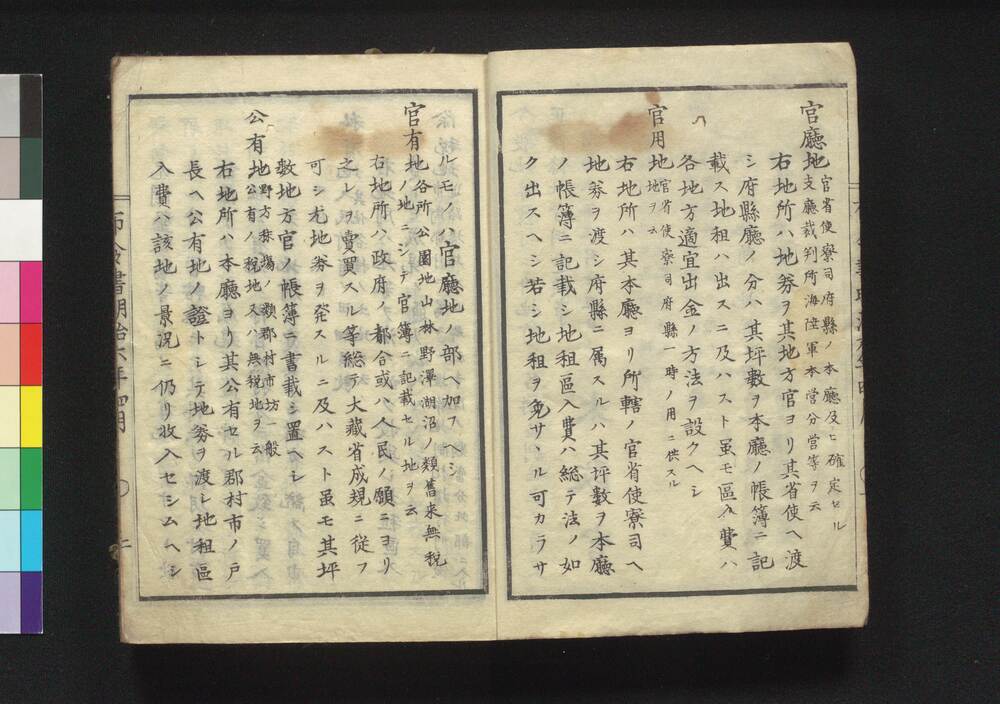 官廳地 官省使寮司府縣ノ本廳及ヒ確定セル
支廳裁判所海陸軍本営分営等ヲ云
右地所ハ地券ヲ其地方官ヨリ其省使ヘ渡
シ府縣廳ノ分ハ其坪數ヲ本廳ノ帳簿ニ記
載ス地租ハ出スニ及ハスト虽モ區入費ハ
各地方適宜出金ノ方法ヲ設クヘシ
官用地 官省使寮司府縣一時ノ用ニ供スル
地ヲ云
右地所ハ其本廳ヨリ所轄ノ官省使寮司ヘ
地券ヲ渡シ府縣ニ属スルハ其坪數ヲ本廳
ノ帳簿ニ記載シ地租區入費ハ総テ法ノ如
ク出スヘシ若シ地租ヲ免サヽル可カラサ
ルモノハ官廳地ノ部ヘ加フヘシ
官有地 各所公園地山林野澤湖沼ノ類舊来無税
ノ地ニシテ官簿ニ記載セル地ヲ云
右地所ハ政府ノ都合或ハ人民ノ願ニヨリ
之レヲ賣買スル等総テ大藏省成規ニ従フ
可シ尤地券ヲ発スルニ及ハスト虽モ其坪
數地方官ノ帳簿ニ書載シ置ヘシ
公有地 野方秣場ノ類郡村市坊一般
公有ノ税地又ハ無税地ヲ云
右地所ハ本廳ヨリ其公有セル郡村市ノ戸
長ヘ公有地ノ證トシテ地券ヲ渡シ地租區
入費ハ該地ノ景況ニ仍リ收入セシムヘシ
布令書明治六年四月
二